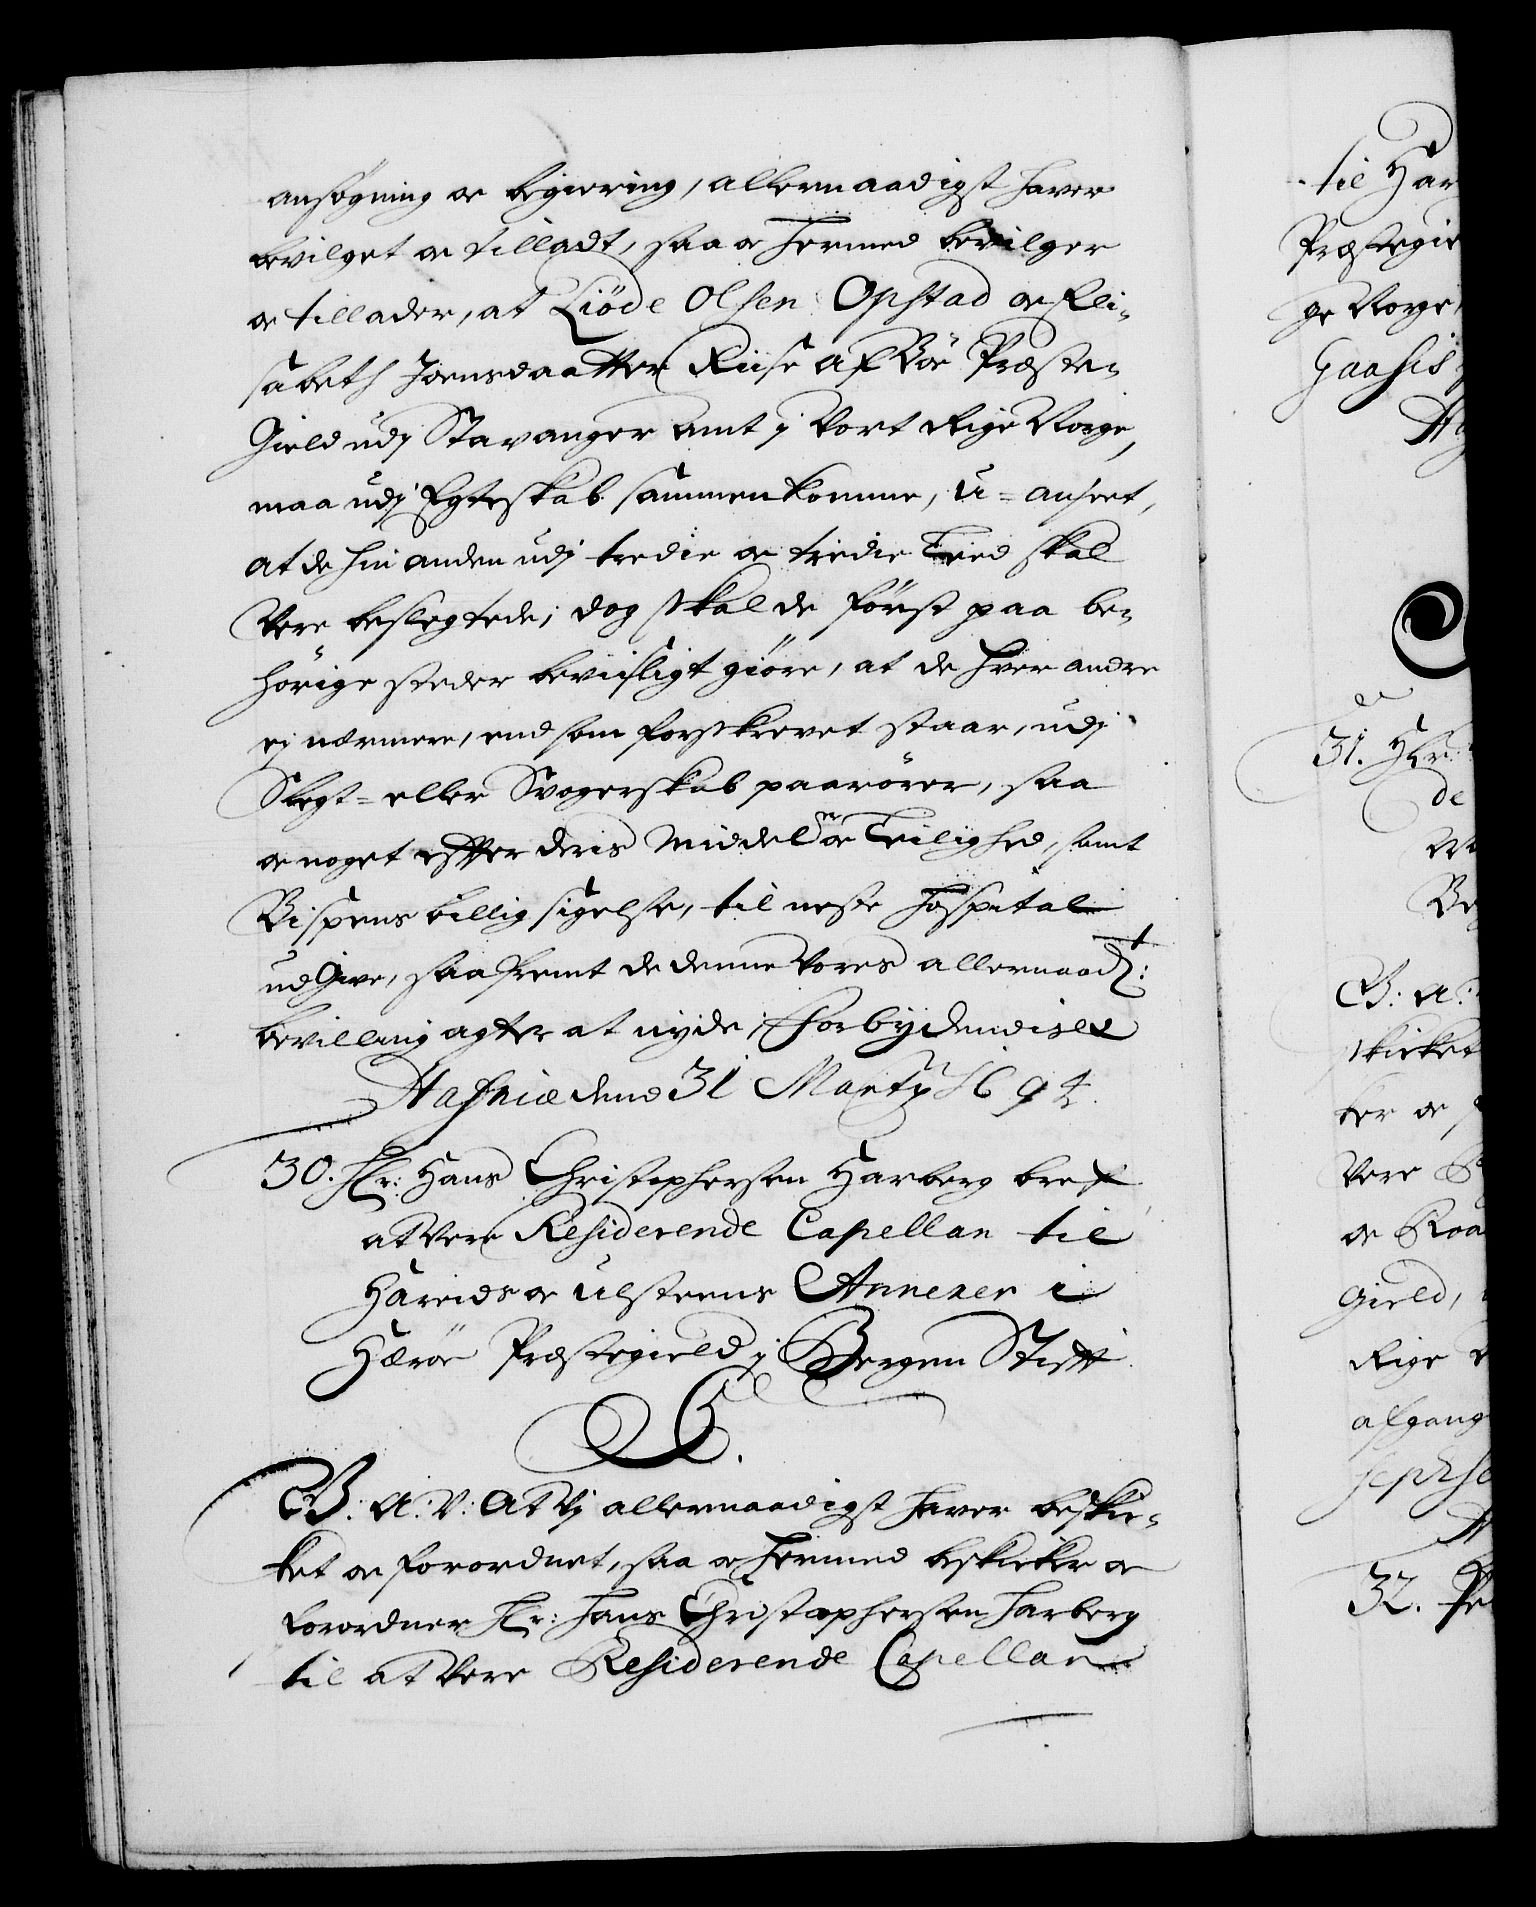 ansøgning oc begiering, allernaadigst haver
bevilget oc tilladt, saa oc hermed bevilger
oc tillader, at Liöde Olsen Opstad oc Eli-
sabeth Joensdaatter Riise af Böe Præste-
Gield udj Stavanger Amt j Vort Rige Norge,
maa udj Egteskab sammenkomme, u-anseet,
at de hin anden udj tredie oc tredie Leed skal
Vere beslegtede; dog skal de först paa be-
hörige steder beviisligt giöre, at de hver andre
ej nærmere, end som forskrevet staar, udj
Slegt- eller Svogerskab paarörer, saa
oc noget effter deris Middel oc Leilighed, samt
Bispens billig sigelse, til neste Hospital
udGive, saafremt de denne Vores allernaadt:
bevilling agter at nyde; Forbydendis etc
Hafniæ dend 31 Martij 1694.
30. Hr: Hans Christophersen Harberg bref
at Vere Residerende Capellan til
Hareids oc Ulsteens Annexer i
Heröe Præstegield j Bergen Stifft
C5.
G: A: V: At Vj allernaadigst haver beskic-
ket oc forordnet, saa oc hermed beskicker oc
forordner Hr: Hans Christophersen Harberg
til at Vere Residerende Capellan
til Har
Præstegie
ge Norge,
31. Hr:
de
G: A:
skicket
ker oc
Vere
oc Roa
Gield,
Rige
afgang
32.